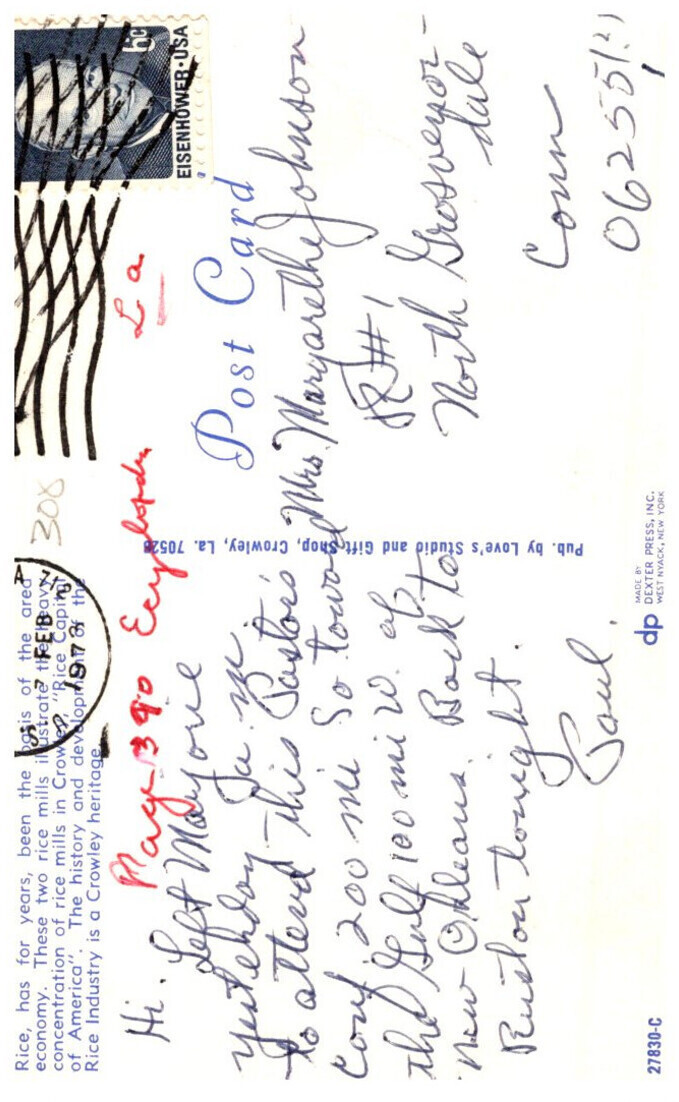 Rice, has for years, been the basis of the area
economy. These two rice mills illustrate the heavy
concentration of rice mills in Crowley "Rice Capital
of America". The history and development of the
Rice Industry is a Crowley heritage.
FEB
1973
308
EISENHOWER·USA
6c
Page 390 La
Post Card
Hi. Left Marjorie
yesterday in
to attend this Pastor's
Conf. 200 mi So toward
the Gulf 100 mi W. of
New Orleans. Back to
Ruston tonight.
Paul.
Mrs. Margarethe Johnson
R#1
North Grosvenor-
dale
Conn
06255(?)
Pub. by Love's Studio and Gift Shop, Crowley, La. 70526
dp
MADE BY
DEXTER PRESS, INC.
WEST NYACK, NEW YORK
27830-C